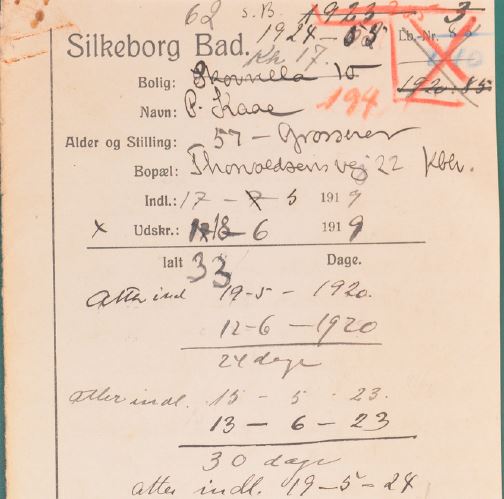 62 S.B. 1923 3
1924 - 55 Lb.-Nr.
Silkeborg Bad. Kh 17.
Bolig: Skovvilla 10 1920.85
Navn: P. Kaae 194
Alder og Stilling: 57 - Grosserer
Bopæl: Thorvaldsensvej 22 Kbhv.
Indl.: 17 - 5 1919
x Udskr.: 18 - 6 1919
Ialt 33 Dage.
Atter ind 19-5 - 1920.
12-6 - 1920
24 dage
Atter indl. 15 - 5 - 23.
13 - 6 - 23
30 dage
Atter indl. 19-5-24